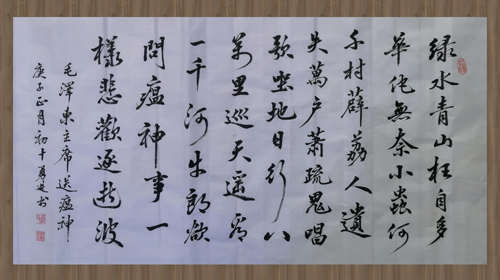 綠水青山枉自多
華佗無奈小蟲何
千村薜荔人遺
失萬户蕭疏鬼唱
歌坐地日行八
萬里巡天遥看
一千河牛郎欲
問瘟神事一
樣悲歡逐逝波
毛澤東主席送瘟神
庚子正月初十書